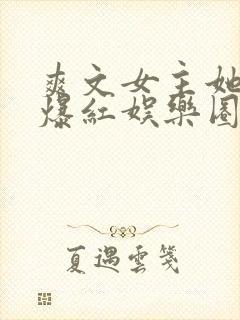 爽文女主她
爆紅娛樂圈
夏遇雲箋